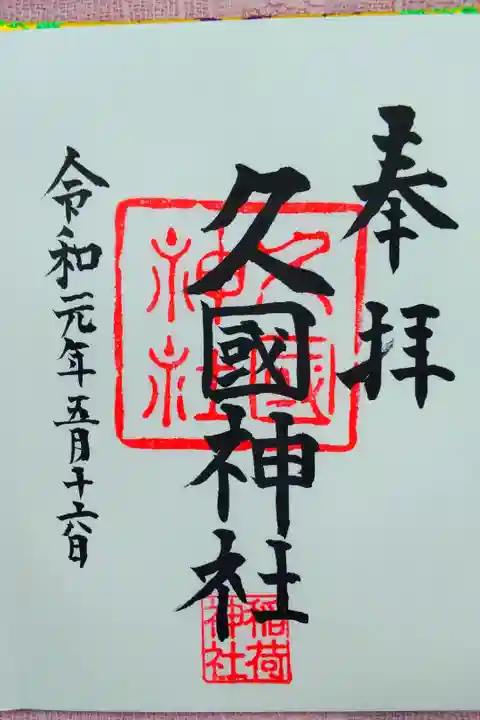 奉拝
久國神社
久國
神社
稲荷
神社
令和元年五月十六日